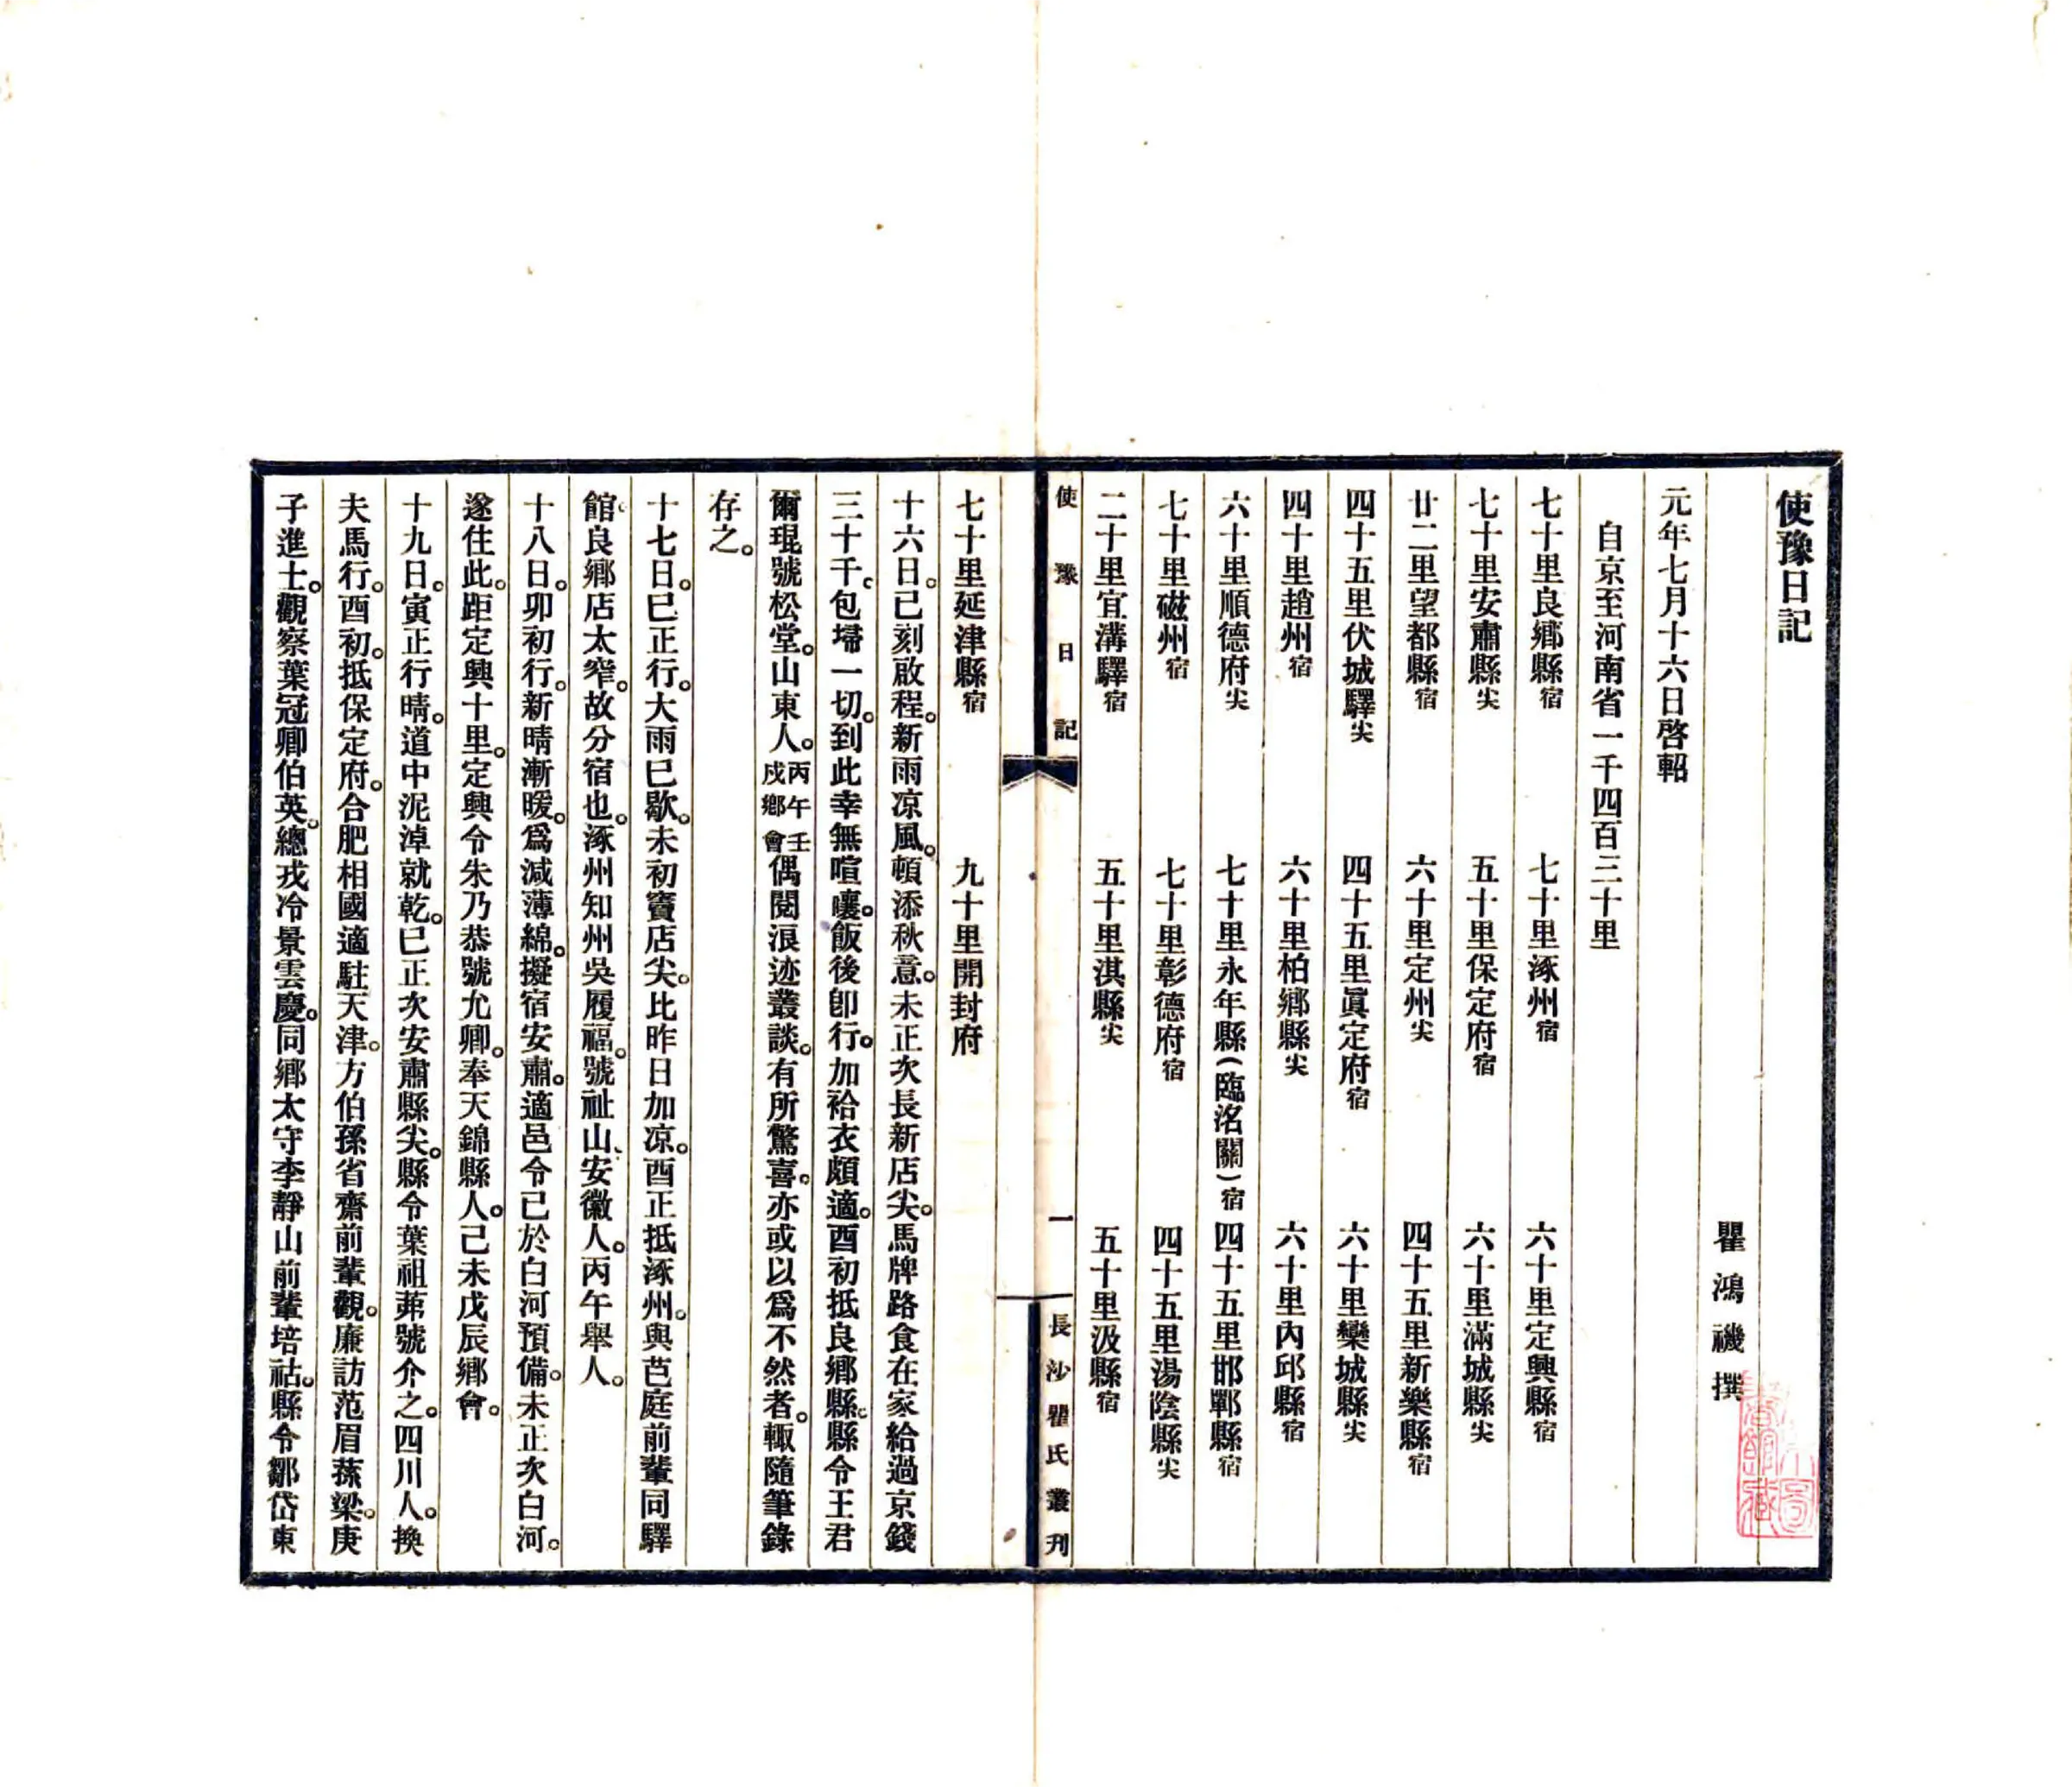 使豫日記
瞿鴻禨撰
元年七月十六日啓軺
自京至河南省一千四百三十里
七十里良鄉縣宿　七十里涿州宿　六十里定興縣宿
七十里安肅縣尖　五十里保定府宿　六十里滿城縣尖
廿二里望都縣宿　六十里定州尖　四十五里新樂縣宿
四十五里伏城驛尖　四十五里眞定府宿　六十里欒城縣尖
四十里趙州宿　六十里柏鄉縣尖　六十里內邱縣宿
六十里順德府尖　七十里永年縣(臨洺關)宿　四十五里邯鄲縣宿
七十里磁州宿　七十里彰德府宿　四十五里湯陰縣尖
二十里宜溝驛宿　五十里淇縣尖　五十里汲縣宿
使豫日記　一　長沙瞿氏叢刊
七十里延津縣宿　九十里開封府
十六日。已刻啟程。新雨凉風。頓添秋意。未正次長新店尖。馬牌路食在家給過京錢
三十千。包埽一切。到此幸無喧嚷。飯後卽行。加袷衣頗適。酉初抵良鄉縣。縣令王君
爾琨號松堂。山東人。丙午壬戌鄉會偶閱浪迹叢談。有所驚喜。亦或以爲不然者。輙隨筆錄
存之。
十七日。巳正行。大雨已歇。未初竇店尖。比昨日加凉。酉正抵涿州。與芭庭前輩同驛
館。良鄉店太窄。故分宿也。涿州知州吳履福。號祉山、安徽人。丙午舉人。
十八日。卯初行。新晴漸暖。爲減薄綿。擬宿安肅。適邑令已於白河預備。未正次白河。
遂住此。距定興十里。定興令朱乃恭號允卿。奉天錦縣人。己未戊辰鄉會。
十九日。寅正行晴。道中泥淖就乾。巳正次安肅縣尖。縣令葉祖茀號介之。四川人。換
夫馬行。酉初。抵保定府。合肥相國適駐天津。方伯孫省齋前輩觀。廉訪范眉蓀梁。庚
子進士。觀察葉冠卿伯英。總戎冷景雲慶。同鄉太守李靜山前輩培祜。縣令鄒岱東